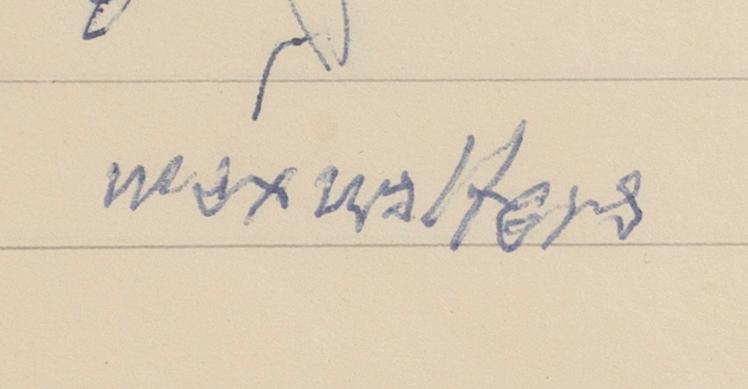 max walters